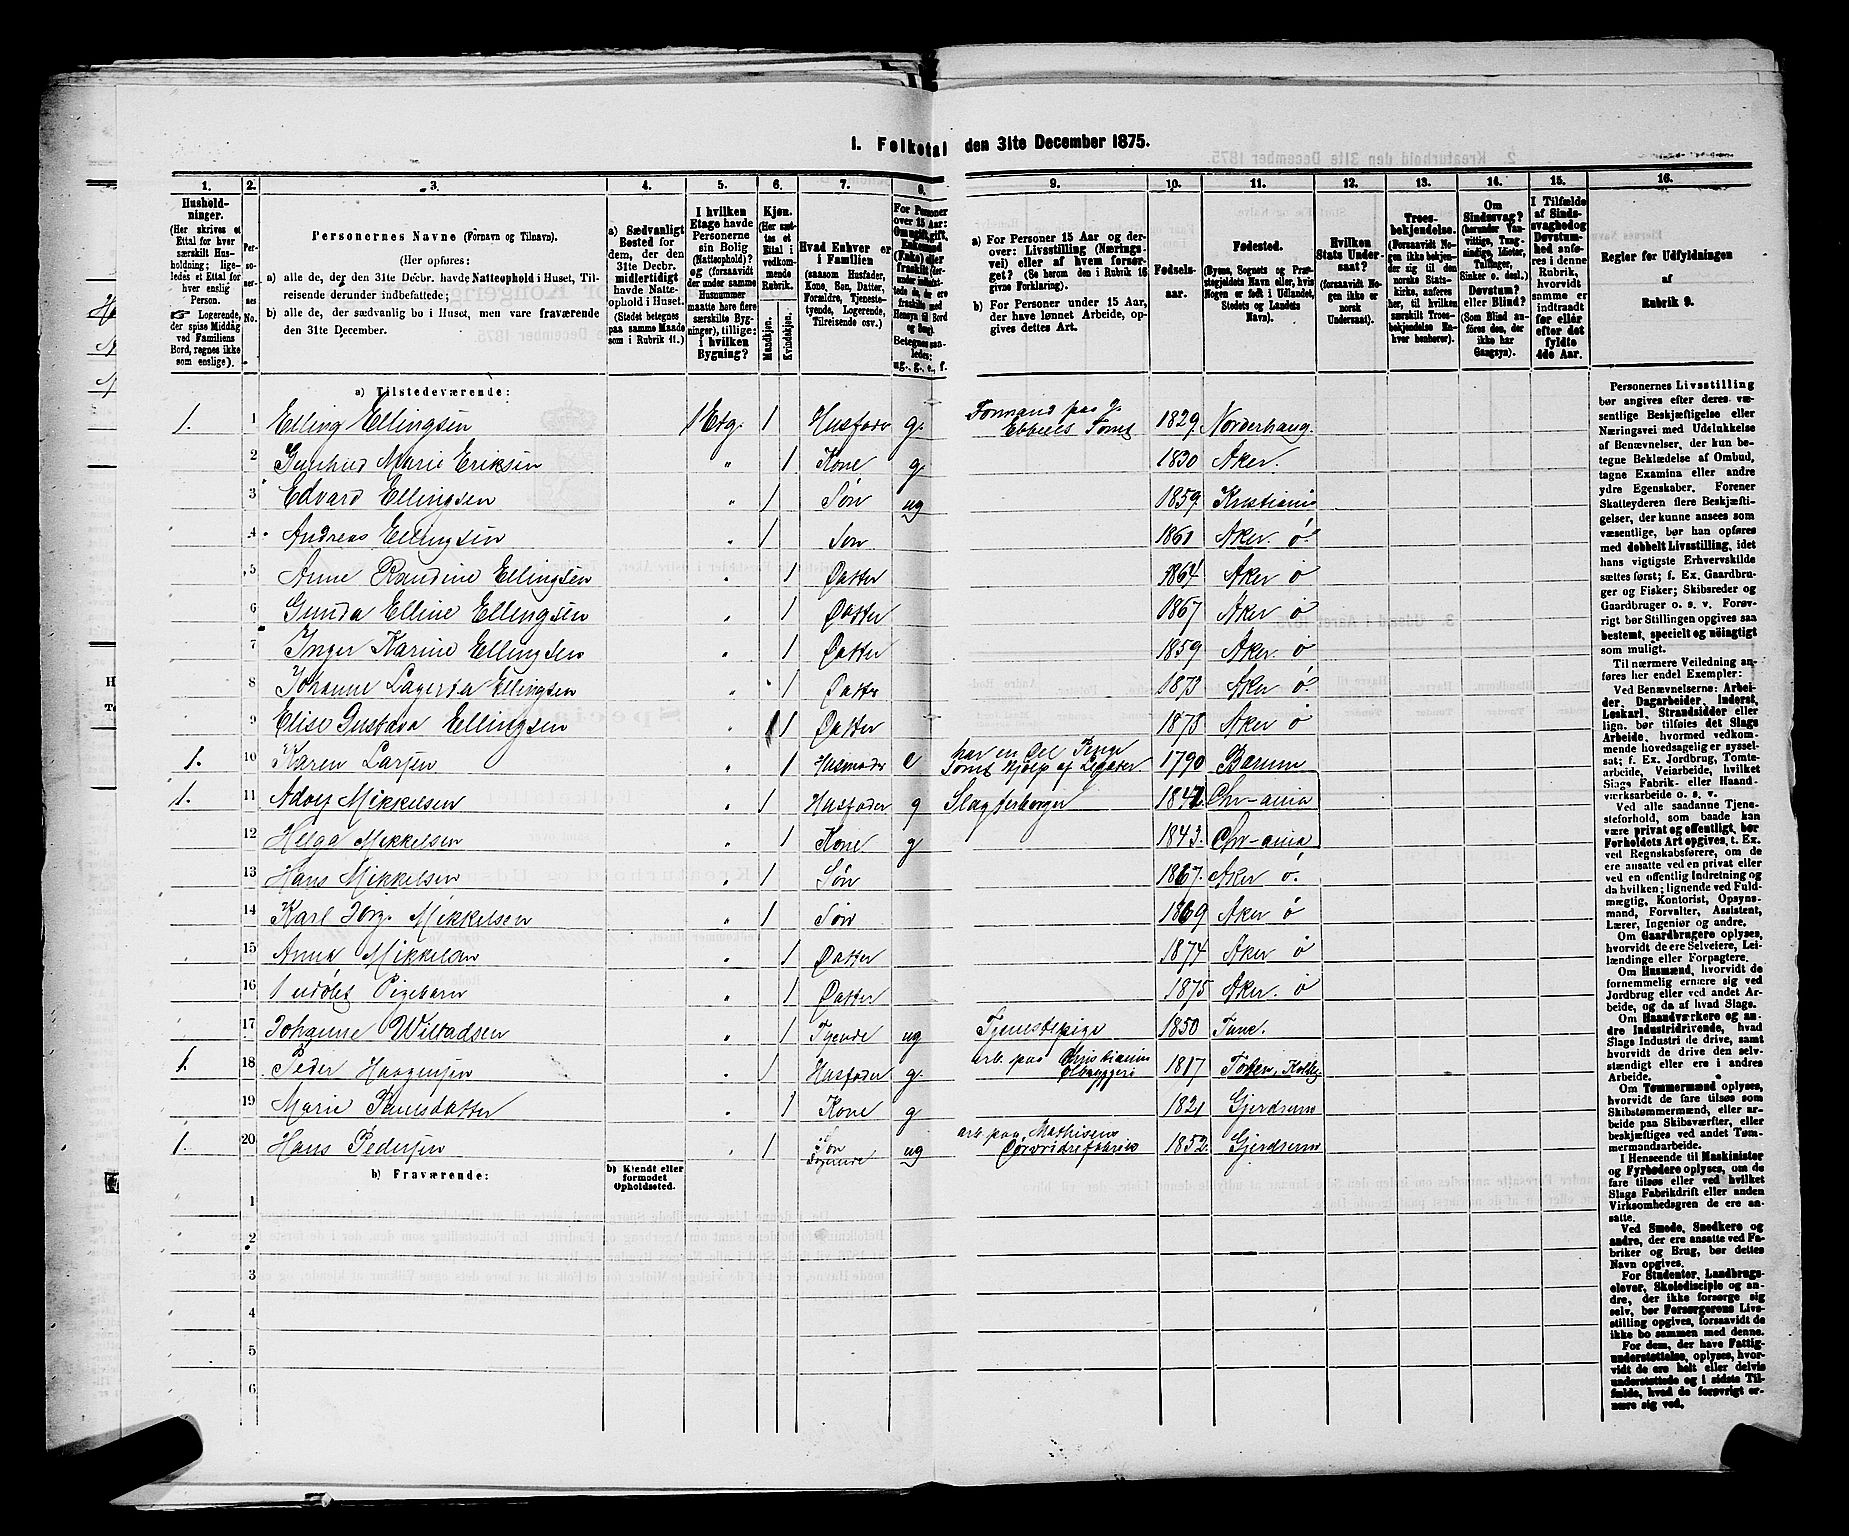 1. Folketal den 31te December 1875.
1. 2. 3. 4. 5. 6. 7. 8. 9. 10. 11. 12. 13. 14. 15. 16.
Hushold-
ninger.
(Her skrives et
Ettal for hver
særskilt Hus-
holdning; lige-
ledes et Ettal for
hver enslig
Person.
Logerende,
der spise Middag
ved Familiens
Bord, regnes ikke
som enslige).
Per-
so-
ner-
nes
No.
Personernes Navne (Fornavn og Tilnavn).
(Her opføres:
a) alle de, der den 31te Decbr. havde Natteophold i Huset, Til-
reisende derunder indbefattede;
b) alle de, der sædvanlig bo i Huset, men vare fraværende
den 31te December.
a) Sædvanligt
Bosted for
dem, der den
31te Decbr.
midlertidigt
havde Natte-
ophold i Huset.
(Stedet betegnes
paa samme Maade
som i Rubrik 11.)
I hvilken
Etage havde
Personerne
sin Bolig
(Natteophold)?
og (forsaavidt
der under samme
Husnummer
maatte høre flere
særskilte Byg-
ninger), tillige:
i hvilken
Bygning?
Kjøn.
(Her sæt-
tes et
Ettal i
vedkom-
mende
Rubrik.
Mandkjøn.
Kvindekjøn.
Hvad Enhver er
i Familien
(saasom Husfader,
Kone, Søn, Datter,
Forældre, Tjeneste-
tyende, Logerende,
Tilreisende osv.)
For Personer
over 15 Aar:
a) For Personer 15 Aar og der-
over: Livsstilling (Nærings-
vei) eller af hvem forsør-
get? (Se herom den i Rubrik 16
givne Forklaring).
b) For Personer under 15 Aar,
der have lønnet Arbeide, op-
gives dettes Art.
Fødsels-
aar.
Fødested.
(Byens, Sognets og Præ-
stegjeldets Navn eller, hvis
Nogen er født i Udlandet,
Stedets og Landets
Navn).
Hvilken
Stats Under-
saat?
(forsaavidt No-
gen ikke er
norsk
Undersaat).
Troes-
bekjendelse.
(Forsaavidt No-
gen ikke beken-
der sig til den
norske Stats-
kirke, anføres
her, til hvilken
særskilt Troes-
bekjendelse En-
hver henhører).
Om
Sindssvag?
(herunder Van-
vittige, Tung-
sindige, Idioter,
Tullinger,
Sinker o. desl.)
Døvstum?
eller Blind?
(Som Blind an-
føres den, der
ikke har
Gangsyn).
I Tilfælde
af Sinds-
svaghed og
Døvstum-
hed anfø-
res i denne
Rubrik,
hvorvidt
samme er
indtraadt
før eller
efter det
fyldte
4de Aar.
Regler for Udfyldningen
af
Rubrik 9.
a) Tilstedeværende:
1. 1 Elling Ellingsen 1 Etg. 1 Husfader g. Formand paa Ebbels Tomt 1829 Norderhaug.
2 Gunhild Marie Eriksen " 1 Kone g. 1830 Aker.
3 Edvard Ellingsen " 1 Søn ug 1859 Kristiania
4 Andreas Ellingsen " 1 Søn 1861 Aker. ø
5 Anne Randine Ellingsen " 1 Datter 1864 Aker ø
6 Gunda Elline Ellingsen " 1 Datter 1867 Aker ø
7 Inger Karine Ellingsen " 1 Datter 1859 Aker. ø
8 Johanne Lagerta Ellingsen " 1 Datter 1873 Aker ø
9 Elise Gustava Ellingsen " 1 Datter 1875 Aker ø
1. 10 Karen Larsen " 1 Husmoder e har en Del Penge samt Hjelp af Legater. 1790 Bærum
1. 11 Adolf Mikkelsen " 1 Husfader g Slagterborger 1842 Chr-ania
12 Helga Mikkelsen " 1 Kone g 1843. Chr-ania
13 Hans Mikkelsen " 1 Søn 1867. Aker ø.
14 Karl Jorg. Mikkelsen " 1 Søn 1869 Aker ø
15 Anna Mikkelsen " 1 Datter 1874 Aker ø
16 1 udøbt Pigebarn " 1 Datter 1875 Aker. ø
17 Johanne Willadsen " 1 Tyende ug Tjenestepige 1850 Tune.
1. 18 Peder Haagensen " 1 Husfader g. arb. paa Christiania Ølbryggeri 1817 Toten, Kolbu
19 Marie Paulsdatter " 1 Kone g 1821 Gjerdrum
1. 20 Hans Pedersen " 1 Søn logerende ug arb. paa Mathisens 1852. Gjerdrum
b) Fraværende:
b) Kjendt eller
formodet
Opholdssted.
1
2
3
4
5
6
Personernes Livsstilling
bør angives efter deres væ-
sentlige Beskjæftigelse eller
Næringsvei med Udelukkelse
af Benævnelser, der kun be-
tegne Beklædelse af Ombud,
tagne Examina eller andre
ydre Egenskaber. Forener
Skatteyderen flere Beskjæfti-
gelser, der kunne ansees som
væsentlige, bør han opføres
med dobbelt Livsstilling, idet
hans vigtigste Erhvervskilde
sættes først; f. Ex. Gaardbru-
ger og Fisker; Skibsreder og
Gaardbruger o. s. v. Forøv-
rigt bør Stillingen opgives saa
bestemt, specielt og nøiagtigt
som muligt.
Til nærmere Veiledning an-
føres her endel Exempler:
Ved Benævnelserne: Arbei-
der, Dagarbeider, Inderst,
Løskarl, Strandsidder eller
lign. bør tilføies det Slags
Arbeide, hvormed vedkom-
mende hovedsagelig er syssel-
sat; f. Ex. Jordbrug, Tomte-
arbeide, Veiarbeide, hvilket
Slags Fabrik- eller Haand-
værksarbeide o. s. v.
Ved alle saadanne Tjene-
steforhold, som baade kan
være privat og offentligt, bør
Forholdets Art opgives, t. Ex.
ved Regnskabsførere, om de
ere ansatte ved en privat eller
ved en offentlig Indretning og
da hvilken; lignende ved Fuld-
mægtig, Kontorist, Opsyns-
mand, Forvalter, Assistent,
Lærer, Ingeniør og andre.
Om Gaardbrugere oplyses,
hvorvidt de ere Selveiere, Lei-
lændinge eller Forpagtere.
Om Husmænd, hvorvidt de
fornemmelig ernære sig ved
Jordbrug eller ved andet Ar-
beide, og da af hvad Slags.
Om Haandværkere og an-
dre Industridrivende, hvad
Slags Industri de drive, samt
hvorvidt de drive den selv-
stændigt eller ere i andres
Arbeide.
Om Tømmermænd oplyses,
hvorvidt de fare tilsøs som
Skibstømmermænd, eller ar-
beide paa Skibsværfter, eller
beskjæftiges ved andet Tøm-
mermandsarbeide.
I Henseende til Maskinister
og Fyrbødere oplyses, om de
fare tilsøs eller ved hvilket
Slags Fabrikdrift eller anden
Virksomhedsgren de ere an-
satte.
Ved Smede, Snedkere og
andre, der ere ansatte ved Fa-
briker og Brug, bør dettes
Navn opgives.
For Studenter, Landbrugs-
elever, Skoledisciple og an-
dre, der ikke forsørge sig
selv, bør Forsørgerens Livs-
stilling opgives, forsaavidt de
ikke bo sammen med denne.
For dem, der have Fattig-
understøttelse, oplyses, hvor-
vidt de ere helt eller delvis
understøttede og i sidste Til-
fælde, hvad de forøvrigt er-
nære sig ved.